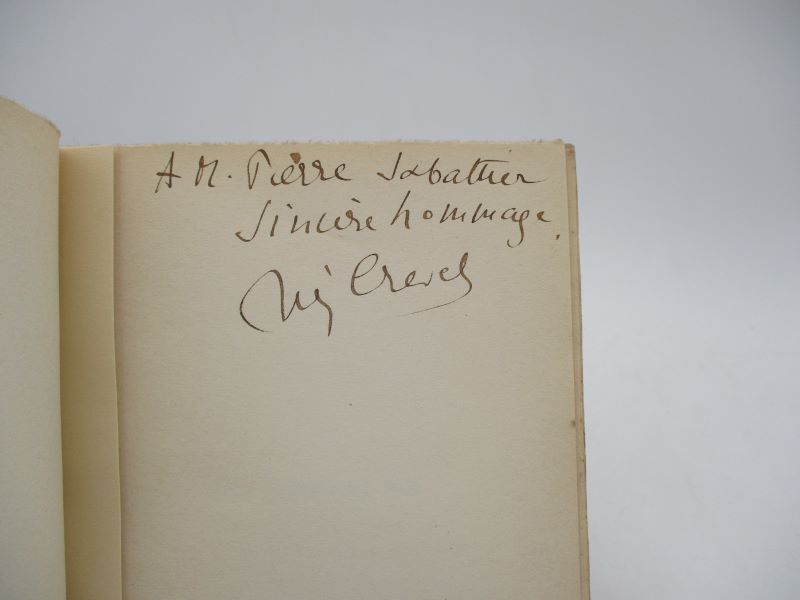 A M. Pierre Sabathier
Sincère hommage.
René Crevel